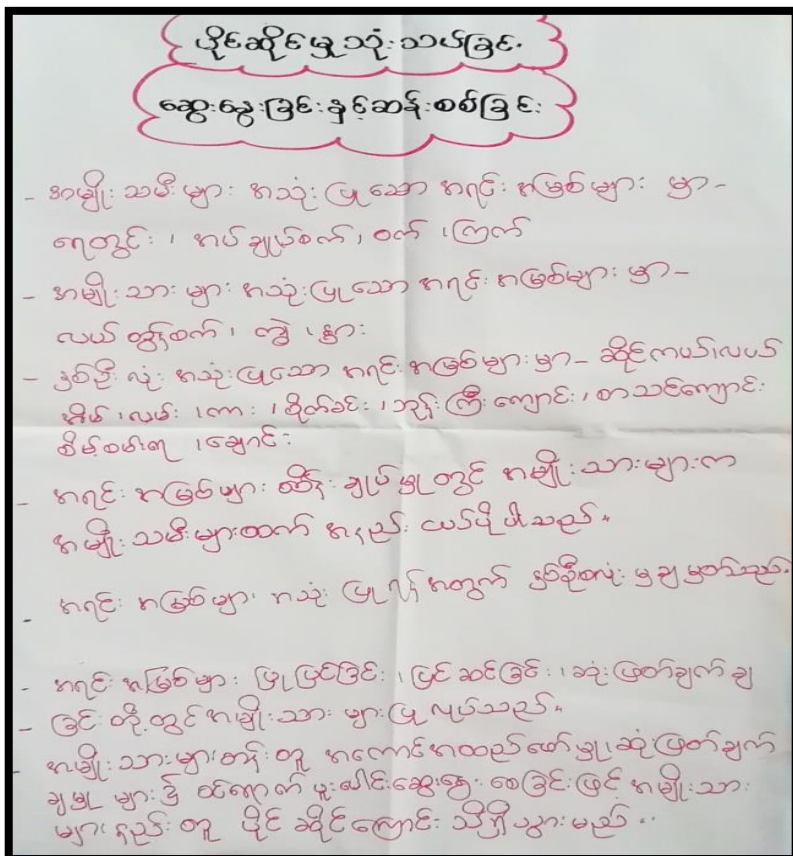 ပိုင်ဆိုင်မှုသုံးသပ်ခြင်း
ဆွေးနွေးခြင်းနှင့်ဆန်းစစ်ခြင်း
- အမျိုးသမီးများ အသုံးပြုသော အရင်းအမြစ်များ မှာ-
ရေတွင်း ၊ အပ်ချုပ်စက်၊ ဝက် ၊ကြက်
- အမျိုးသားများ အသုံးပြုသော အရင်းအမြစ်များ မှာ-
လယ်ထွန်စက်၊ ကျွဲ ၊နွား
- နှစ်ဦးလုံး အသုံးပြုသော အရင်းအမြစ်များမှာ- ဆိုင်ကယ်၊လယ်
အိမ် ၊လမ်း ၊ကား ၊စိုက်ခင်း ၊ဘုန်းကြီးကျောင်း ၊စာသင်ကျောင်း
စိမ့်စမ်းရေ ၊ချောင်း
- အရင်းအမြစ်များ ထိန်းချုပ်မှုတွင် အမျိုးသားများက
အမျိုးသမီးများထက် အနည်းငယ်ပိုပါသည်။
- အရင်းအမြစ်များ အသုံးပြုရန်အတွက် နှစ်ဦးစလုံး မျှမျှတတည်။
- အရင်းအမြစ်များ ပြုပြင်ခြင်း ၊ပြင်ဆင်ခြင်း ၊ဆုံးဖြတ်ချက်ချ
- ခြင်းတို့တွင် အမျိုးသားများပြုလုပ်သည်။
- အမျိုးသားများတန်းတူ အကောင်အထည်ဖော်မှု၊ဆုံးဖြတ်ချက်
ချမှုများ၌ ဝင်ရောက်ပူးပေါင်းဆွေးနွေးစေခြင်းဖြင့် အမျိုးသား
များနည်းတူ ပိုင်ဆိုင်ကြောင်း သိရှိသွားမည်။